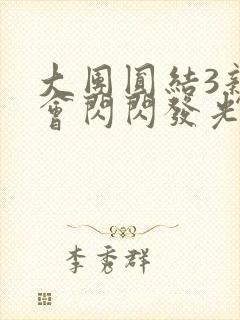 大團圓結3新
會閃閃發光
李秀群